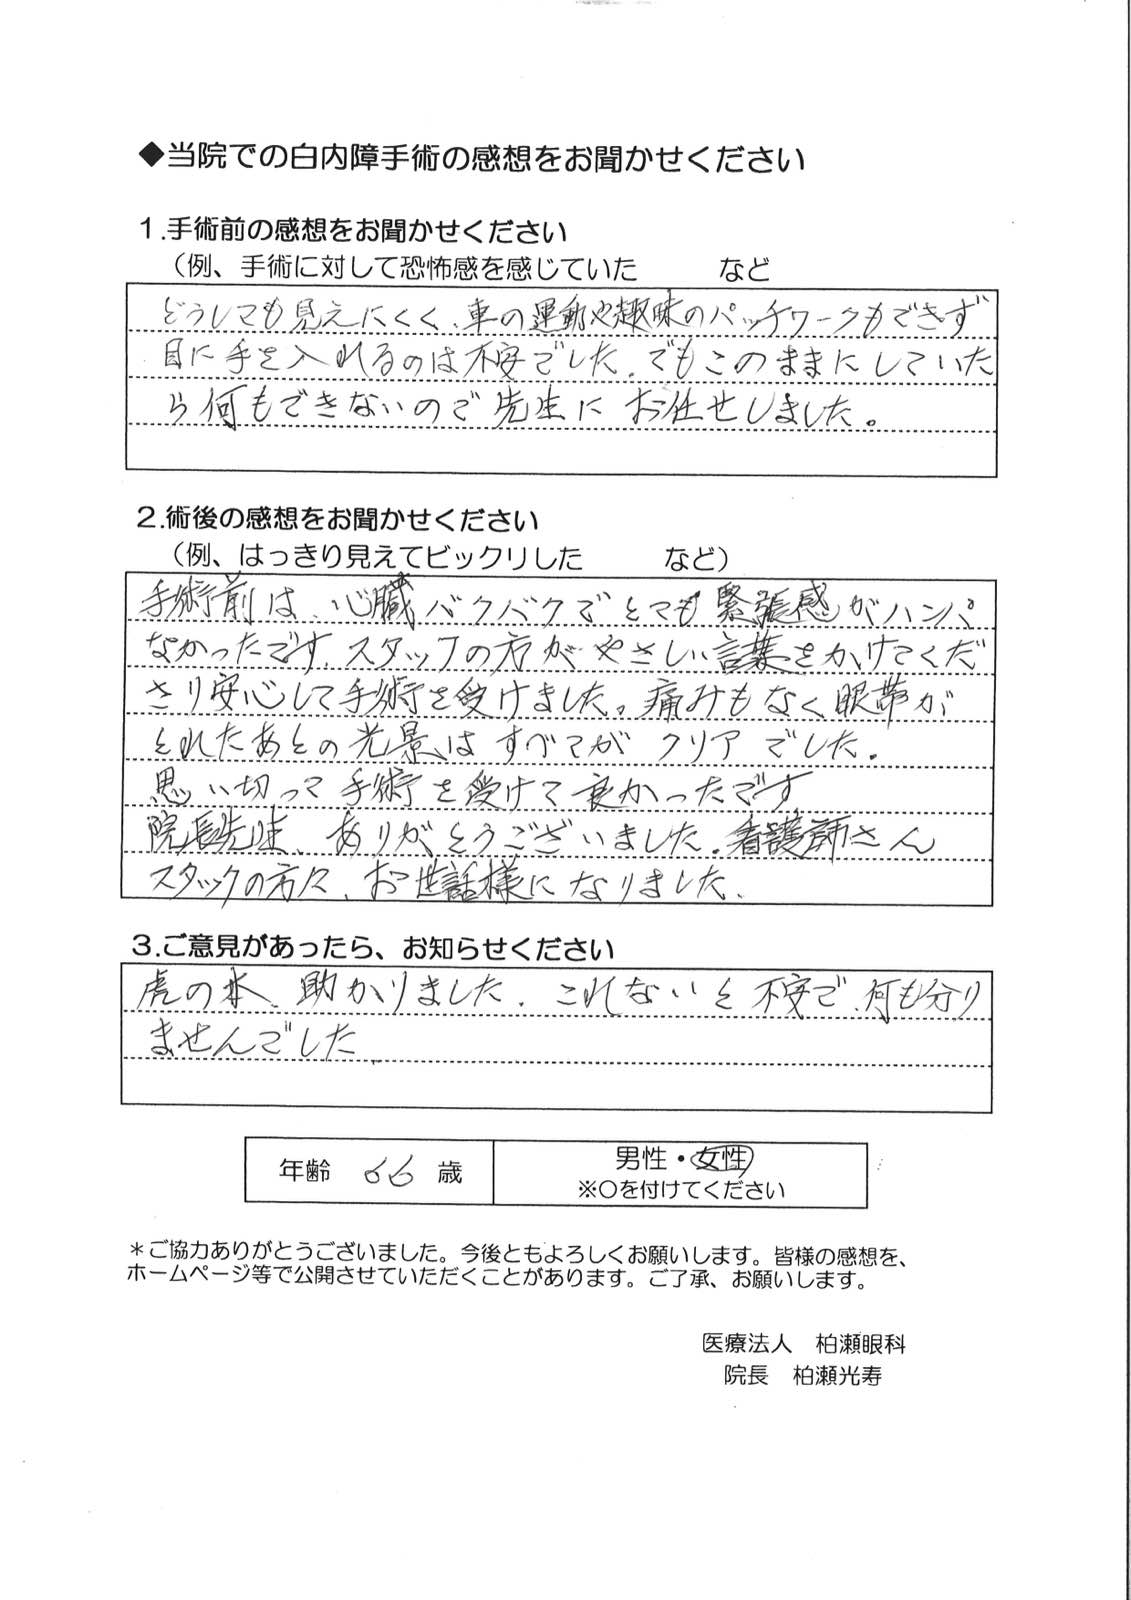 ◆当院での白内障手術の感想をお聞かせください
１.手術前の感想をお聞かせください
（例、手術に対して恐怖感を感じていた　　　など
どうしても見えにくく、車の運動や趣味のパッチワークもできず
目に手を入れるのは不安でした。でもこのままにしていた
ら何もできないので先生にお任せしました。
２.術後の感想をお聞かせください
（例、はっきり見えてビックリした　　　など）
手術前は、心臓バクバクでとても緊張感がハンパ
なかったです。スタッフの方がやさしい言葉をかけてくだ
さり安心して手術を受けました。痛みもなく眼帯が
とれたあとの光景はすべてがクリアでした。
思い切って手術を受けて良かったです
院長先生、ありがとうございました。看護師さん
スタックの方々、お世話様になりました。
３.ご意見があったら、お知らせください
虎の本、助かりました。これないと不安で、何も分り
ませんでした
年齢　66　歳
男性・女性
※○を付けてください
＊ご協力ありがとうございました。今後ともよろしくお願いします。皆様の感想を、
ホームページ等で公開させていただくことがあります。ご了承、お願いします。
医療法人　柏瀬眼科
院長　柏瀬光寿